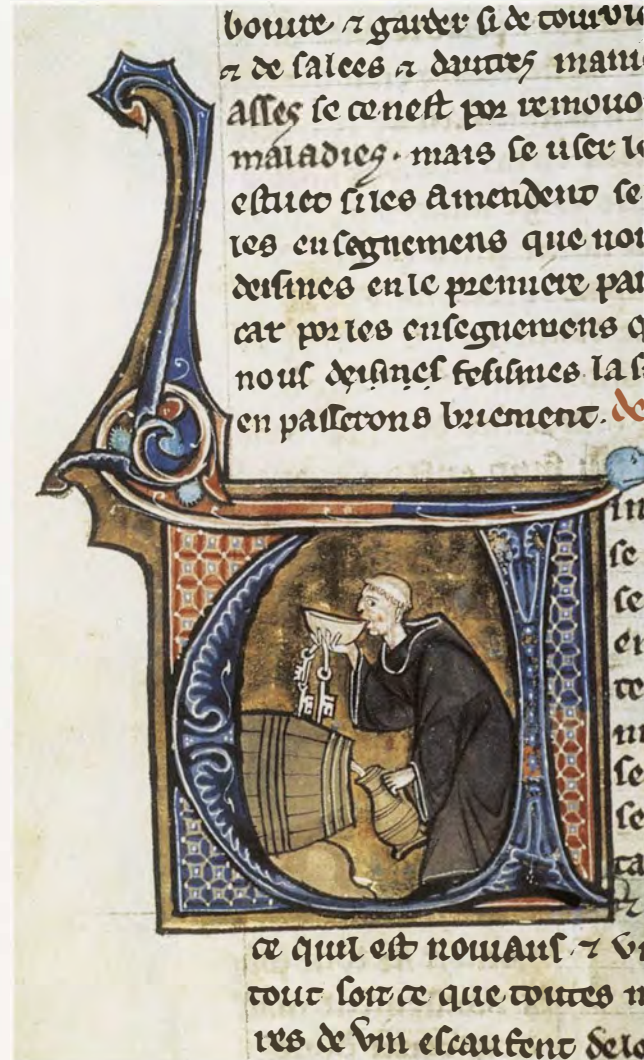 boiure ⁊ garder si de
⁊ de salees ⁊ dautres mani
asses se ce nest por remouo
maladies. mais se user le
estuet si les amendent se
les ensegnemens que nou
desimes en le premiere par
car por les ensegnemens q
nous desimes fesismes la
en passerons briement. de
in
se
se
en
te
se
se
ta
ce quil est nouiaus ⁊ vi
tout soit ce que toutes m
res de vin escaufent